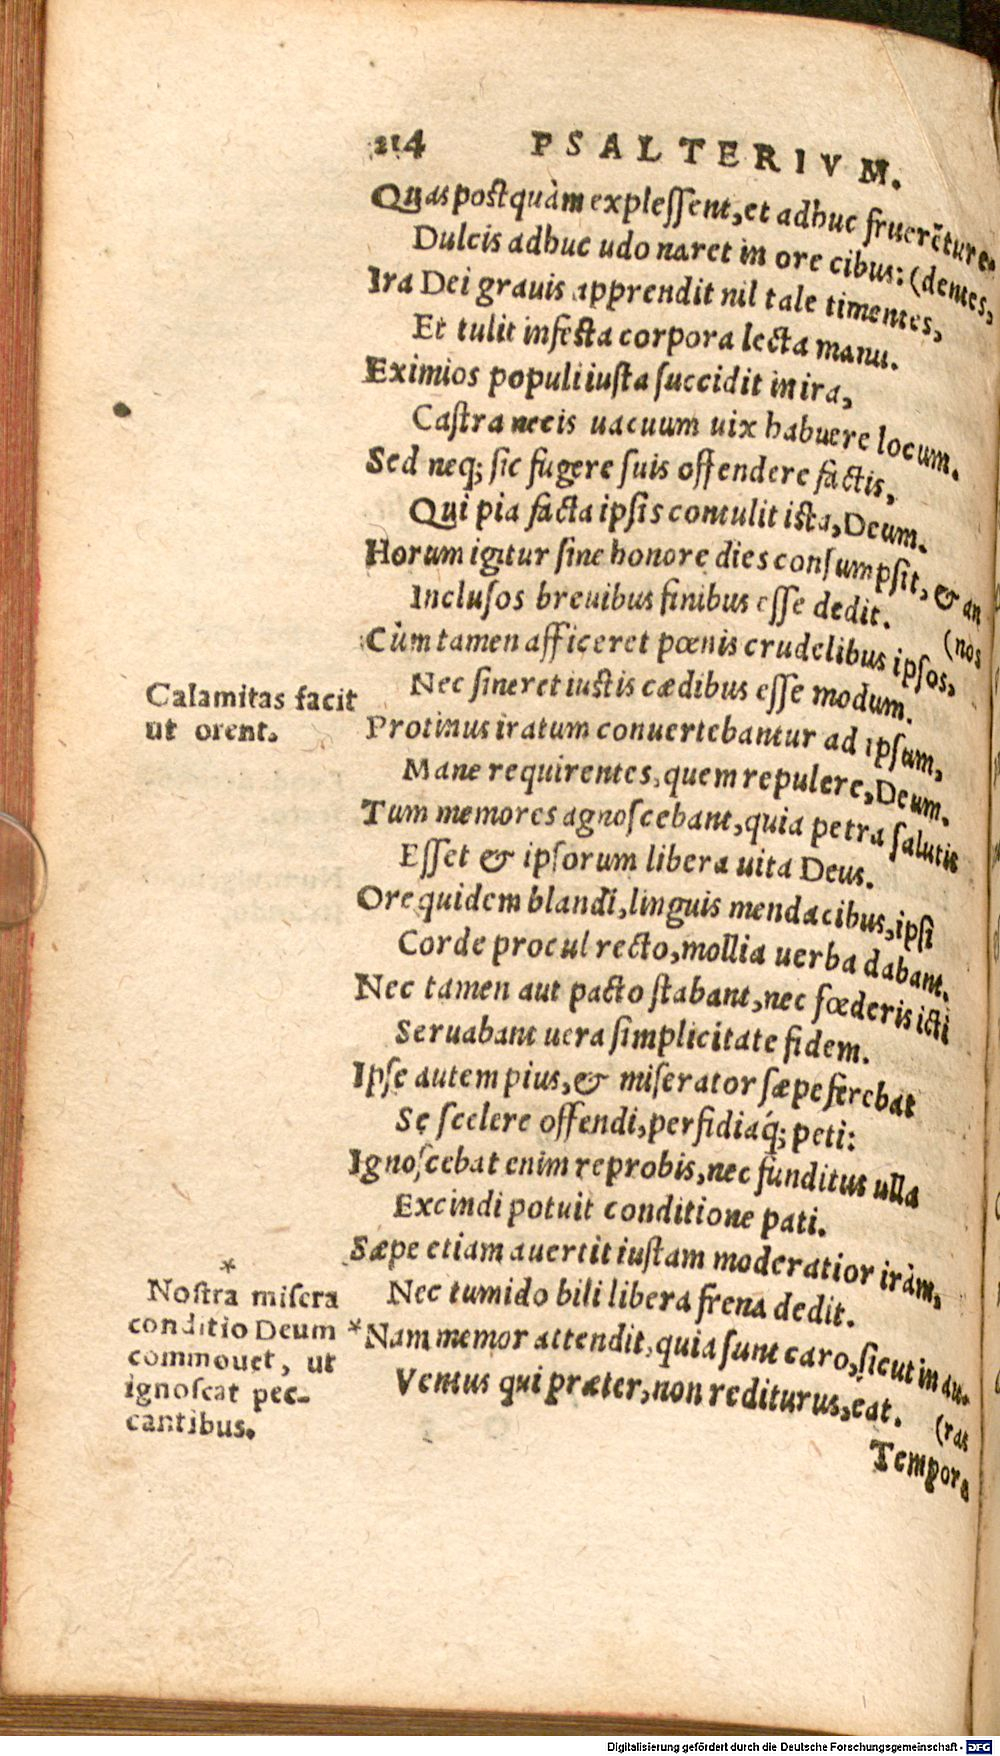 214 PSALTERIVM.
Quas postquàm explessent, et adhuc fruerẽtur e-
Dulcis adhuc udo naret in ore cibus: (dentes,
Ira Dei grauis apprendit nil tale timentes,
Et tulit infesta corpora lecta manu.
Eximios populi iusta succidit in ira,
Castra necis uacuum uix habuere locum.
Sed neq; sic fugere suis offendere factis,
Qui pia facta ipsis contulit ista, Deum.
Horum igitur sine honore dies consumpsit, & an
Inclusos breuibus finibus esse dedit. (nos
Cùm tamen afficeret pœnis crudelibus ipsos,
Nec sineret iustis cædibus esse modum.
Calamitas facit
ut orent.
Protinus iratum conuertebantur ad ipsum,
Mane requirentes, quem repulere, Deum.
Tum memores agnoscebant, quia petra salutis
Esset & ipsorum libera uita Deus.
Ore quidem blandi, linguis mendacibus, ipsi
Corde procul recto, mollia uerba dabant.
Nec tamen aut pacto stabant, nec fœderis icti
Seruabant uera simplicitate fidem.
Ipse autem pius, & miserator sæpe ferebat
Se scelere offendi, perfidiaq́; peti:
Ignoscebat enim reprobis, nec funditus ulla
Excindi potuit conditione pati.
Sæpe etiam auertit iustam moderatior iràm,
Nec tumido bili libera frena dedit.
*
Nostra misera
conditio Deum
commouet, ut
ignoscat pec-
cantibus.
*Nam memor attendit, quia sunt caro, sicut in au-
Ventus qui præter, non rediturus, eat. (ras
Tempora
Digitalisierung gefördert durch die Deutsche Forschungsgemeinschaft - DFG